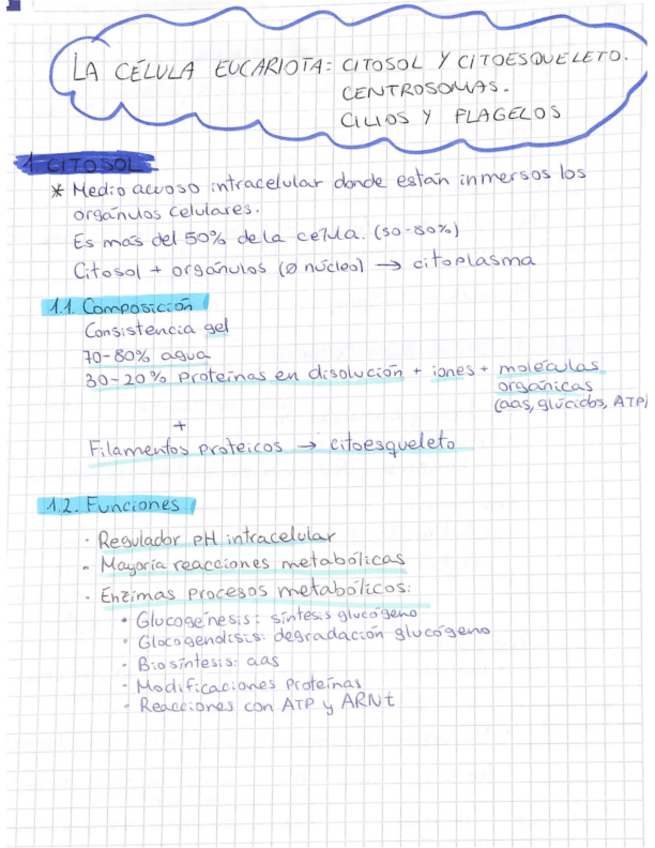 LA CÉLULA EUCARIOTA: CITOSOL Y CITOESQUELETO.
CENTROSOMAS.
CILIOS Y FLAGELOS
1 CITOSOL
* Medio acuoso intracelular donde están inmersos los
orgánulos celulares.
Es más del 50% de la célula. (50-80%)
Citosol + orgánulos (Ø núcleo) → citoplasma
1.1. Composición
Consistencia gel
70-80% agua
30-20% Proteínas en disolución + iones + moléculas
orgánicas
(aas, glúcidos, ATP)
+
Filamentos proteicos → citoesqueleto
1.2. Funciones
· Regulador pH intracelular
· Mayoría reacciones metabólicas
· Enzimas procesos metabólicos:
· Glucogénesis: síntesis glucógeno
· Glocogenolisis: degradación glucógeno
- Biosíntesis: aas
- Modificaciones Proteínas
- Reacciones con ATP y ARNt